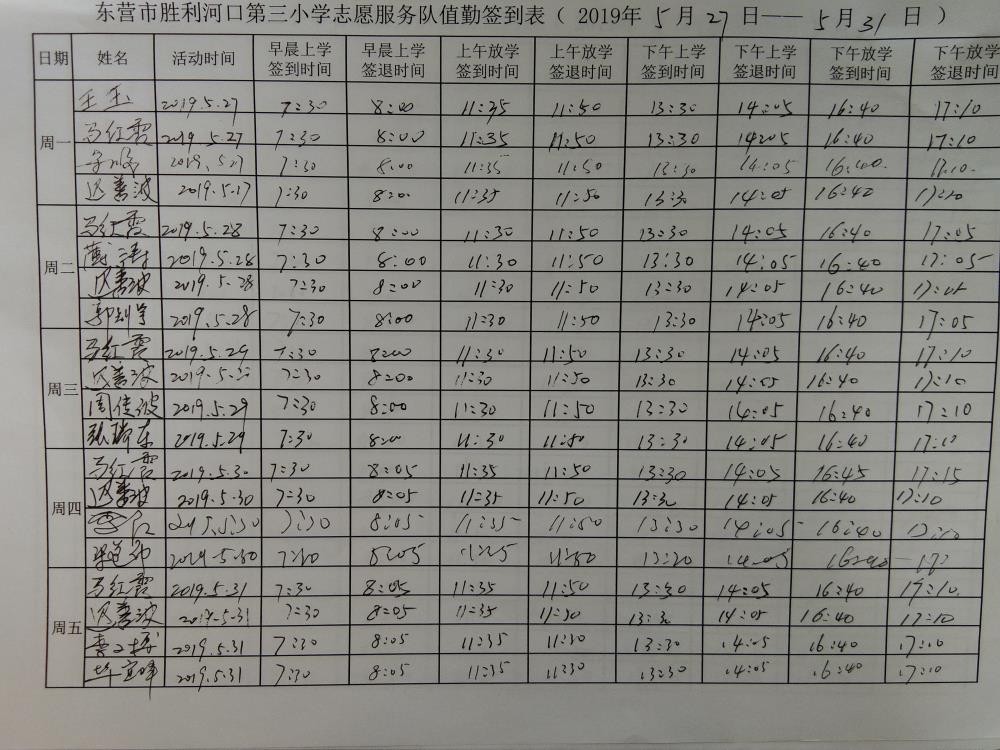 东营市胜利河口第三小学志愿服务队值勤签到表（2019年 5月 27日—— 5月31日）
日期 姓名 活动时间 早晨上学签到时间 早晨上学签退时间 上午放学签到时间 上午放学签退时间 下午上学签到时间 下午上学签退时间 下午放学签到时间 下午放学签退时间
周一 王玉 2019.5.27 7:30 8:00 11:35 11:50 13:30 14:05 16:40 17:10
马红霞 2019.5.27 7:30 8:00 11:35 11:50 13:30 14:05 16:40 17:10
2019.5.27 7:30 8:00 11:35 11:50 13:30 14:05 17:10
迟善波 2019.5.27 7:30 8:00 11:35 11:50 13:30 14:05 16:40 17:10
周二 马红霞 2019.5.28 7:30 8:00 11:30 11:50 13:30 14:05 16:40 17:05
2019.5.28 7:30 8:00 11:30 11:50 13:30 14:05 16:40 17:05
迟善波 2019.5.28 7:30 8:00 11:30 11:50 13:30 14:05 16:40 17:05
2019.5.28 7:30 8:00 11:30 11:50 13:30 14:05 16:40 17:05
周三 马红霞 2019.5.29 7:30 8:00 11:30 11:50 13:30 14:05 16:40 17:10
迟善波 7:30 8:00 11:30 11:50 13:30 14:05 16:40 17:10
周佳波 2019.5.29 7:30 8:00 11:30 11:50 13:30 14:05 16:40 17:10
2019.5.29 7:30 8:00 11:30 11:50 13:30 14:05 16:40 17:10
周四 马红霞 2019.5.30 7:30 8:05 11:35 11:50 13:30 14:05 16:45 17:15
迟善波 2019.5.30 7:30 8:05 11:35 11:50 13:30 14:05 16:40 17:10
2019.5.30 7:30 8:05 11:35 11:50 13:30 14:05 16:40 17:10
2019.5.30 8:05 11:50 14:05 16:40
周五 马红霞 2019.5.31 7:30 8:05 11:35 11:50 13:30 14:05 16:40 17:10
迟善波 2019.5.31 7:30 8:05 11:35 11:30 13:30 14:05 16:40 17:10
2019.5.31 7:30 8:05 11:35 11:30 13:30 14:05 16:40 17:10
毕宝峰 2019.5.31 7:30 8:05 11:35 11:30 13:30 14:05 16:40 17:10